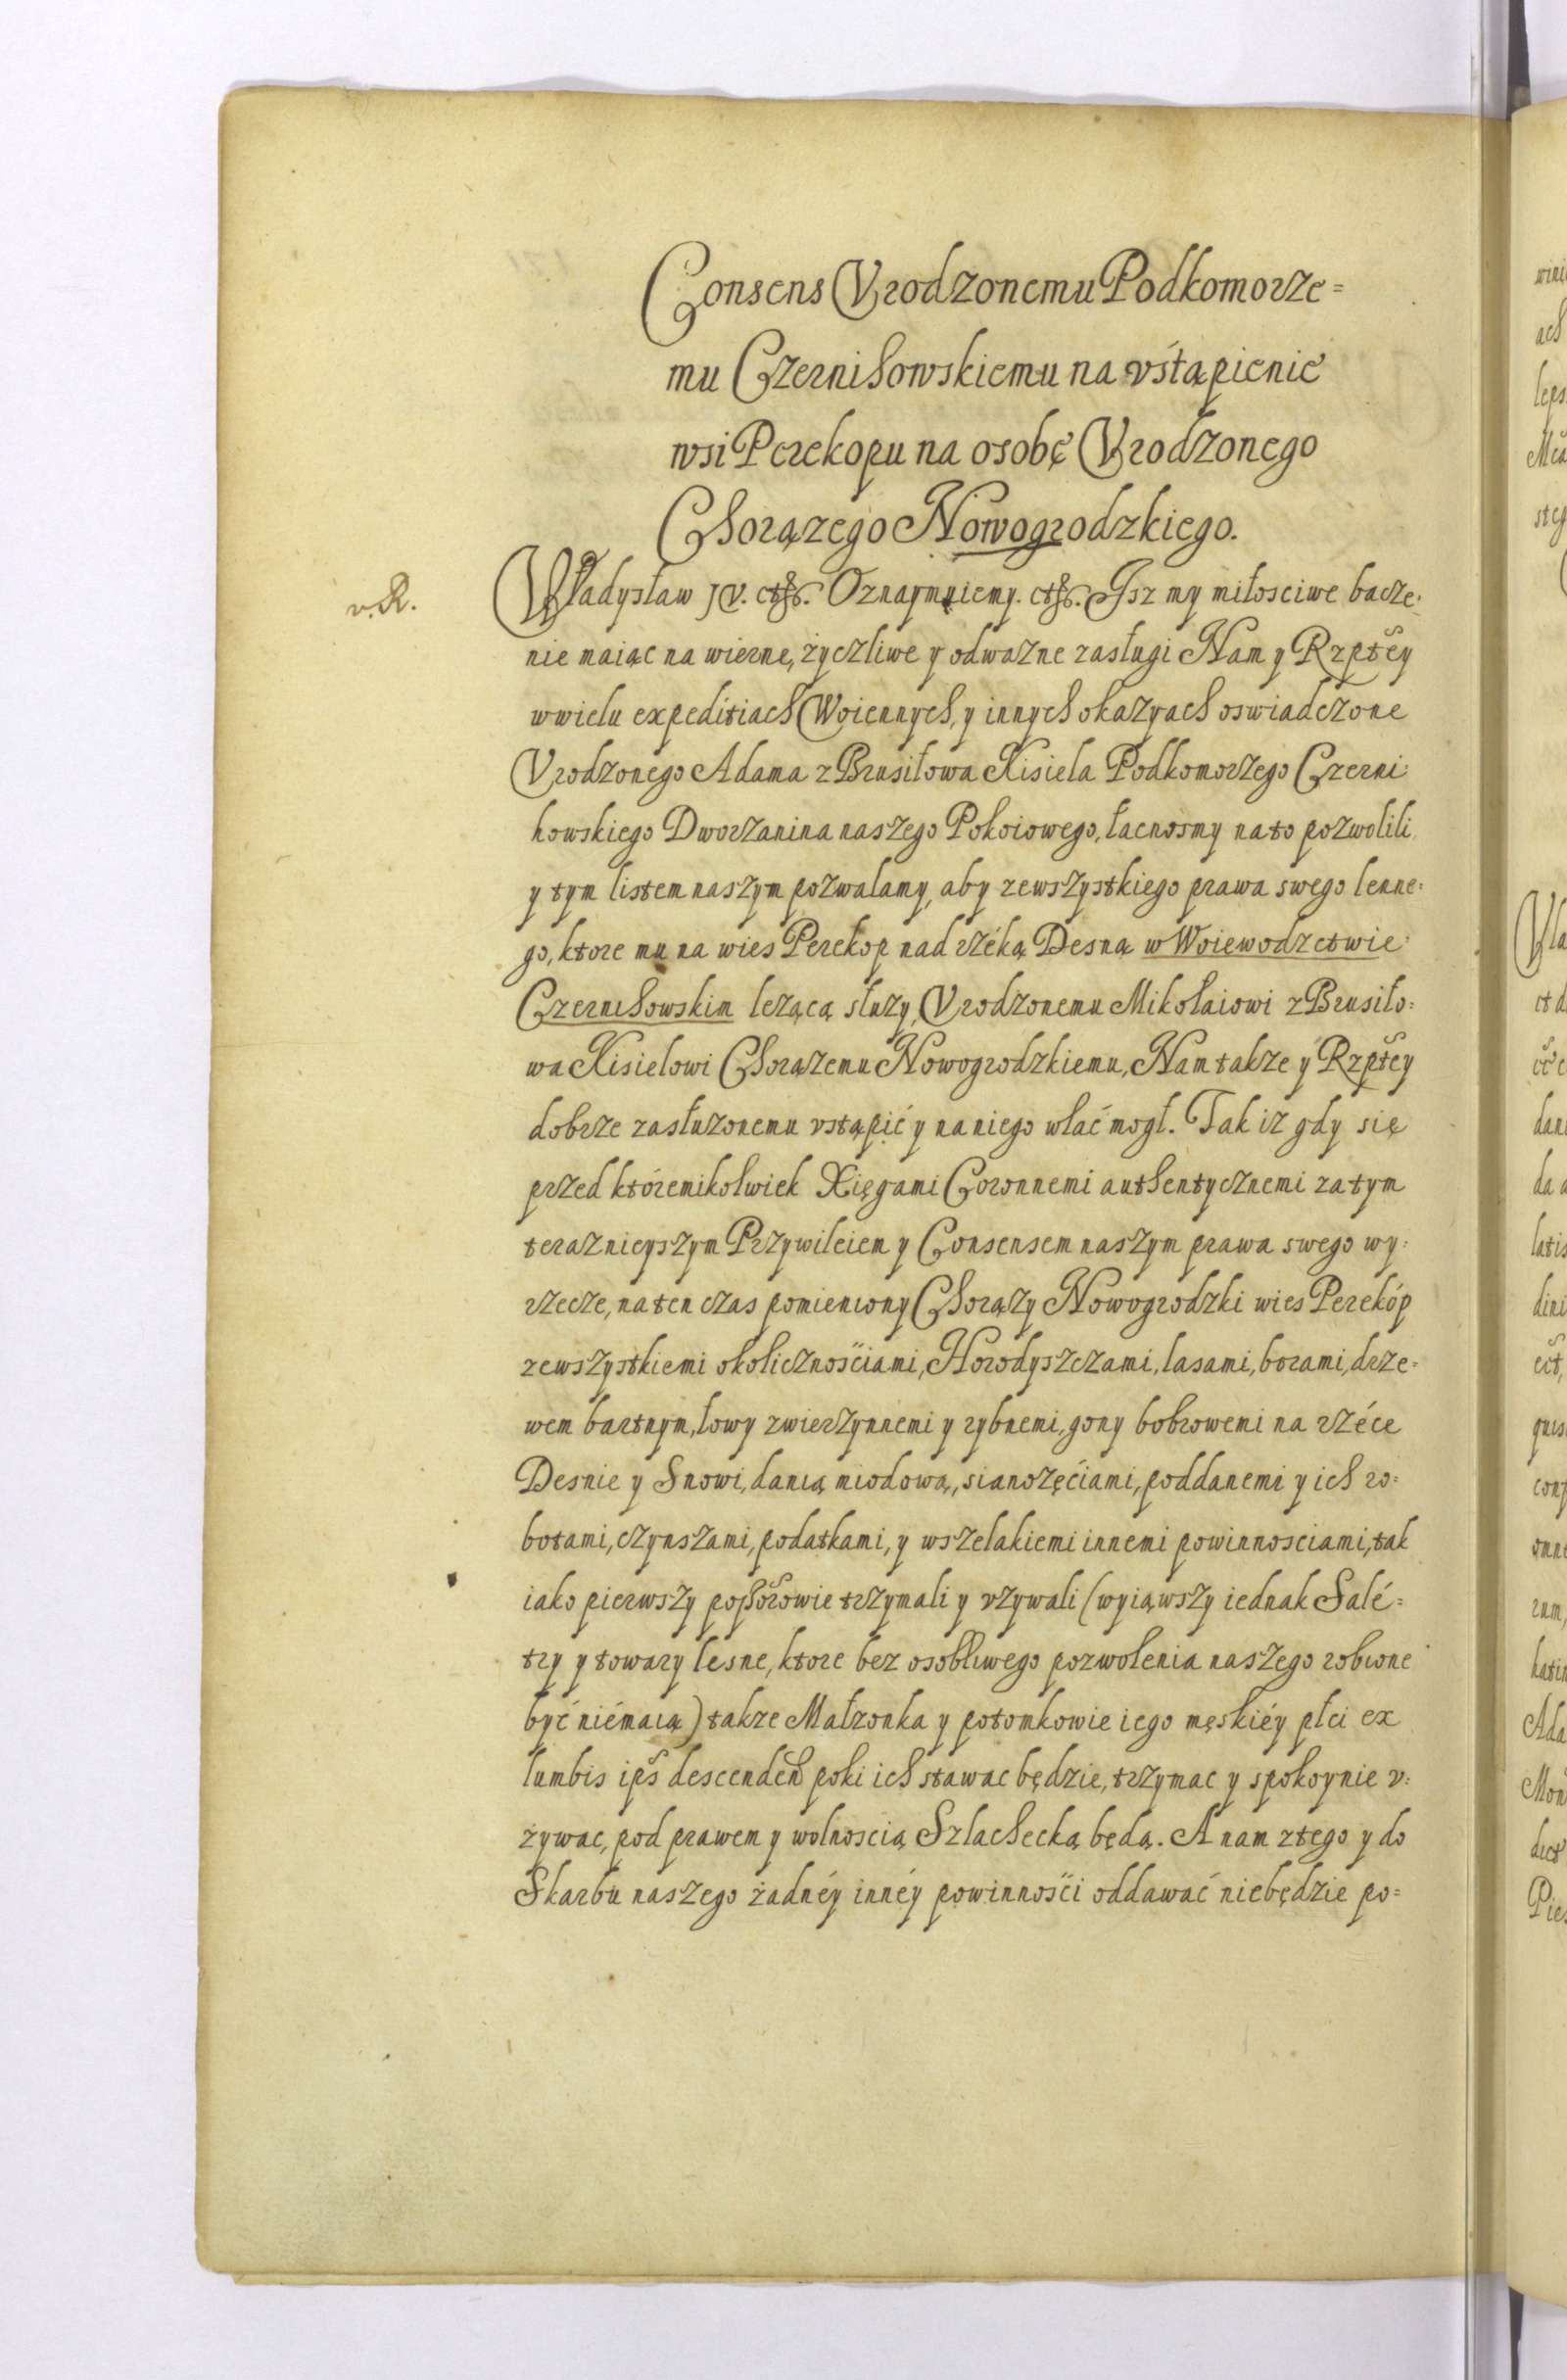 Consens Vrodzonemu Podkomorze=
mu Czernihowskiemu na vstąpienie
wsi Perekopu na osobę Vrodzonego
Chorązego Nowogrodzkiego.
v. R.
Władysław IV. etc. Oznaymuiemy. etc. Isz my miłosciwe bacze:
nie maiąc na wierne, życzliwe y odwazne zasługi Nam y Rzptey
w wielu expeditiach Woiennych, y innych okazyach oswiadczone
Vrodzonego Adama z Brusiłowa Kisiela Podkomorzego Czerni:
howskiego Dworzanina naszego Pokoiowego, łacnosmy na to pozwolili
y tym listem naszym pozwalamy, aby zewszystkiego prawa swego lenne:
go, ktore mu na wies Perekop nad rzéką Desną w Woiewodzctwie
Czernihowskim lezącą słuzy, Vrodzonemu Mikołaiowi z Brusiło:
wa Kisielowi Chorązemu Nowogrodzkiemu, Nam takze y Rzptey
dobrze zasłuzonemu vstąpić y na niego wlać mogł. Tak iz gdy się
przed którémikolwiek Xięgami Coronnemi authentycznemi za tym
teraznieyszym Przywileiem y Consensem naszym prawa swego wy:
rzecze, na ten czas pomieniony Chorązy Nowogrodzki wies Perekóp
zewszystkiemi okolicznosciami, Horodyszczami, lasami, borami, drze=
wem bartnym, łowy zwierzynnemi y rybnemi, gony bobrowemi na rzéce
Desnie y Snowi, danią miodową, sianozęciami, poddanemi y ich ro=
botami, czynszami, podatkami, y wszelakiemi innemi powinnosciami, tak
iako pierwszy possorowie trzymali y vzywali (wyiąwszy iednak Salé=
try y towary lesne, ktore bez osobliwego pozwolenia naszego robione
być niémaią) takze Małzonka y potomkowie iego męskiéy płci ex
lumbis ips descenden poki ich stawac będzie, trzymac y spokoynie v:
zywac, pod prawem y wolnoscią Szlachecką będą. A nam z tego y do
Skarbu naszego żadnéy innéy powinności oddawać niebędzie po=